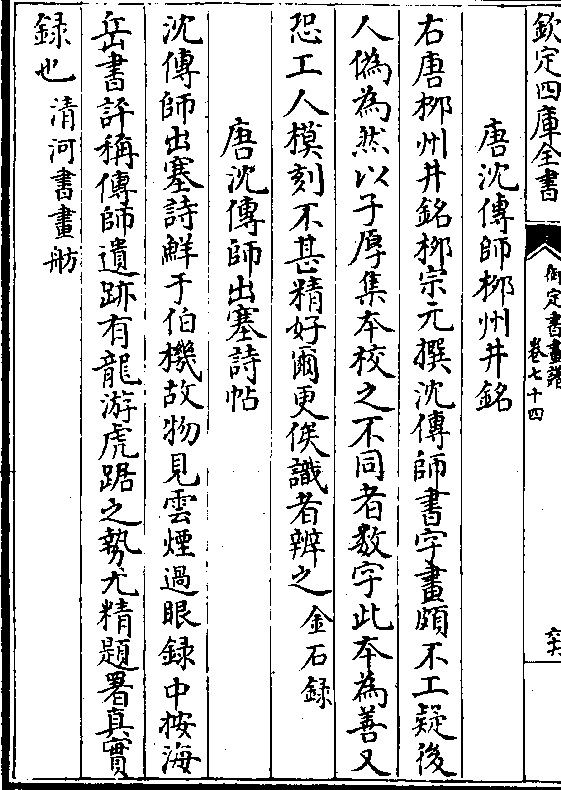 欽定四庫全書
御定書畫譜
卷七十四
六六
唐沈傳師栁州井銘
右唐栁州井銘栁宗元撰沈傳師書字畫頗不工疑後
人偽為然以子厚集本校之不同者數字此本為善又
恐工人模刻不甚精好爾更俟識者辨之 金石録
唐沈傳師出塞詩帖
沈傳師出塞詩鮮于伯機故物見雲煙過眼録中按海
岳書評稱傳師遺跡有龍游虎踞之勢尤精題署真實
録也 清河書畫舫